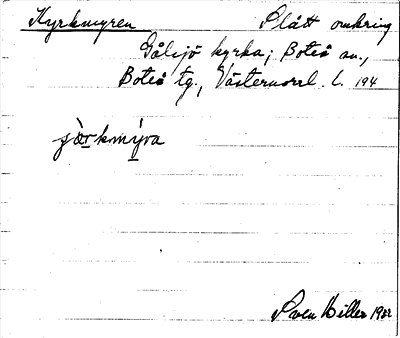 Kyrkmyren Slått omkring
Gålsjö kyrka; Boteå sn.,
Boteå tg., Västernorrl. l. 194
Sven Hiller 1932